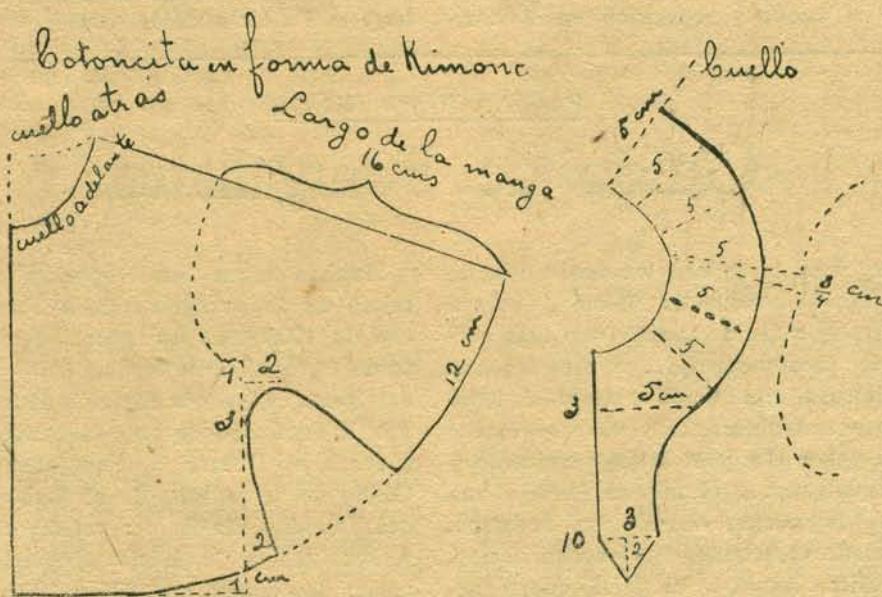 Cotoncita en forma de Kimono
Cuello
cuello atrás
cuello adelante
Largo de la manga
16 cms
12 cm
1
2
3
2
1
cm
5 cm
5
5
5
5
5
3/4 cm
5 cm
10
3
2